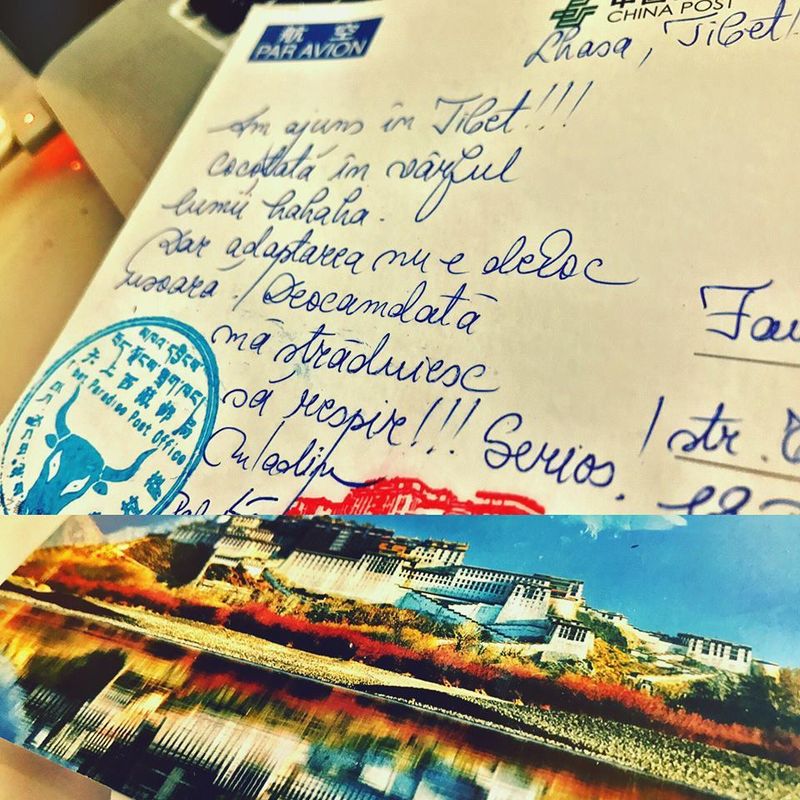 航 空
PAR AVION
CHINA POST
Lhasa, Tibet!
Am ajuns în Tibet!!!
cocoțată în vârful
lumii hahaha.
Dar adaptarea nu-e deloc
ușoară! Deocamdată
mă străduiesc
să respir!!! Serios.
str.
天上西藏邮局
Paradise Post Office